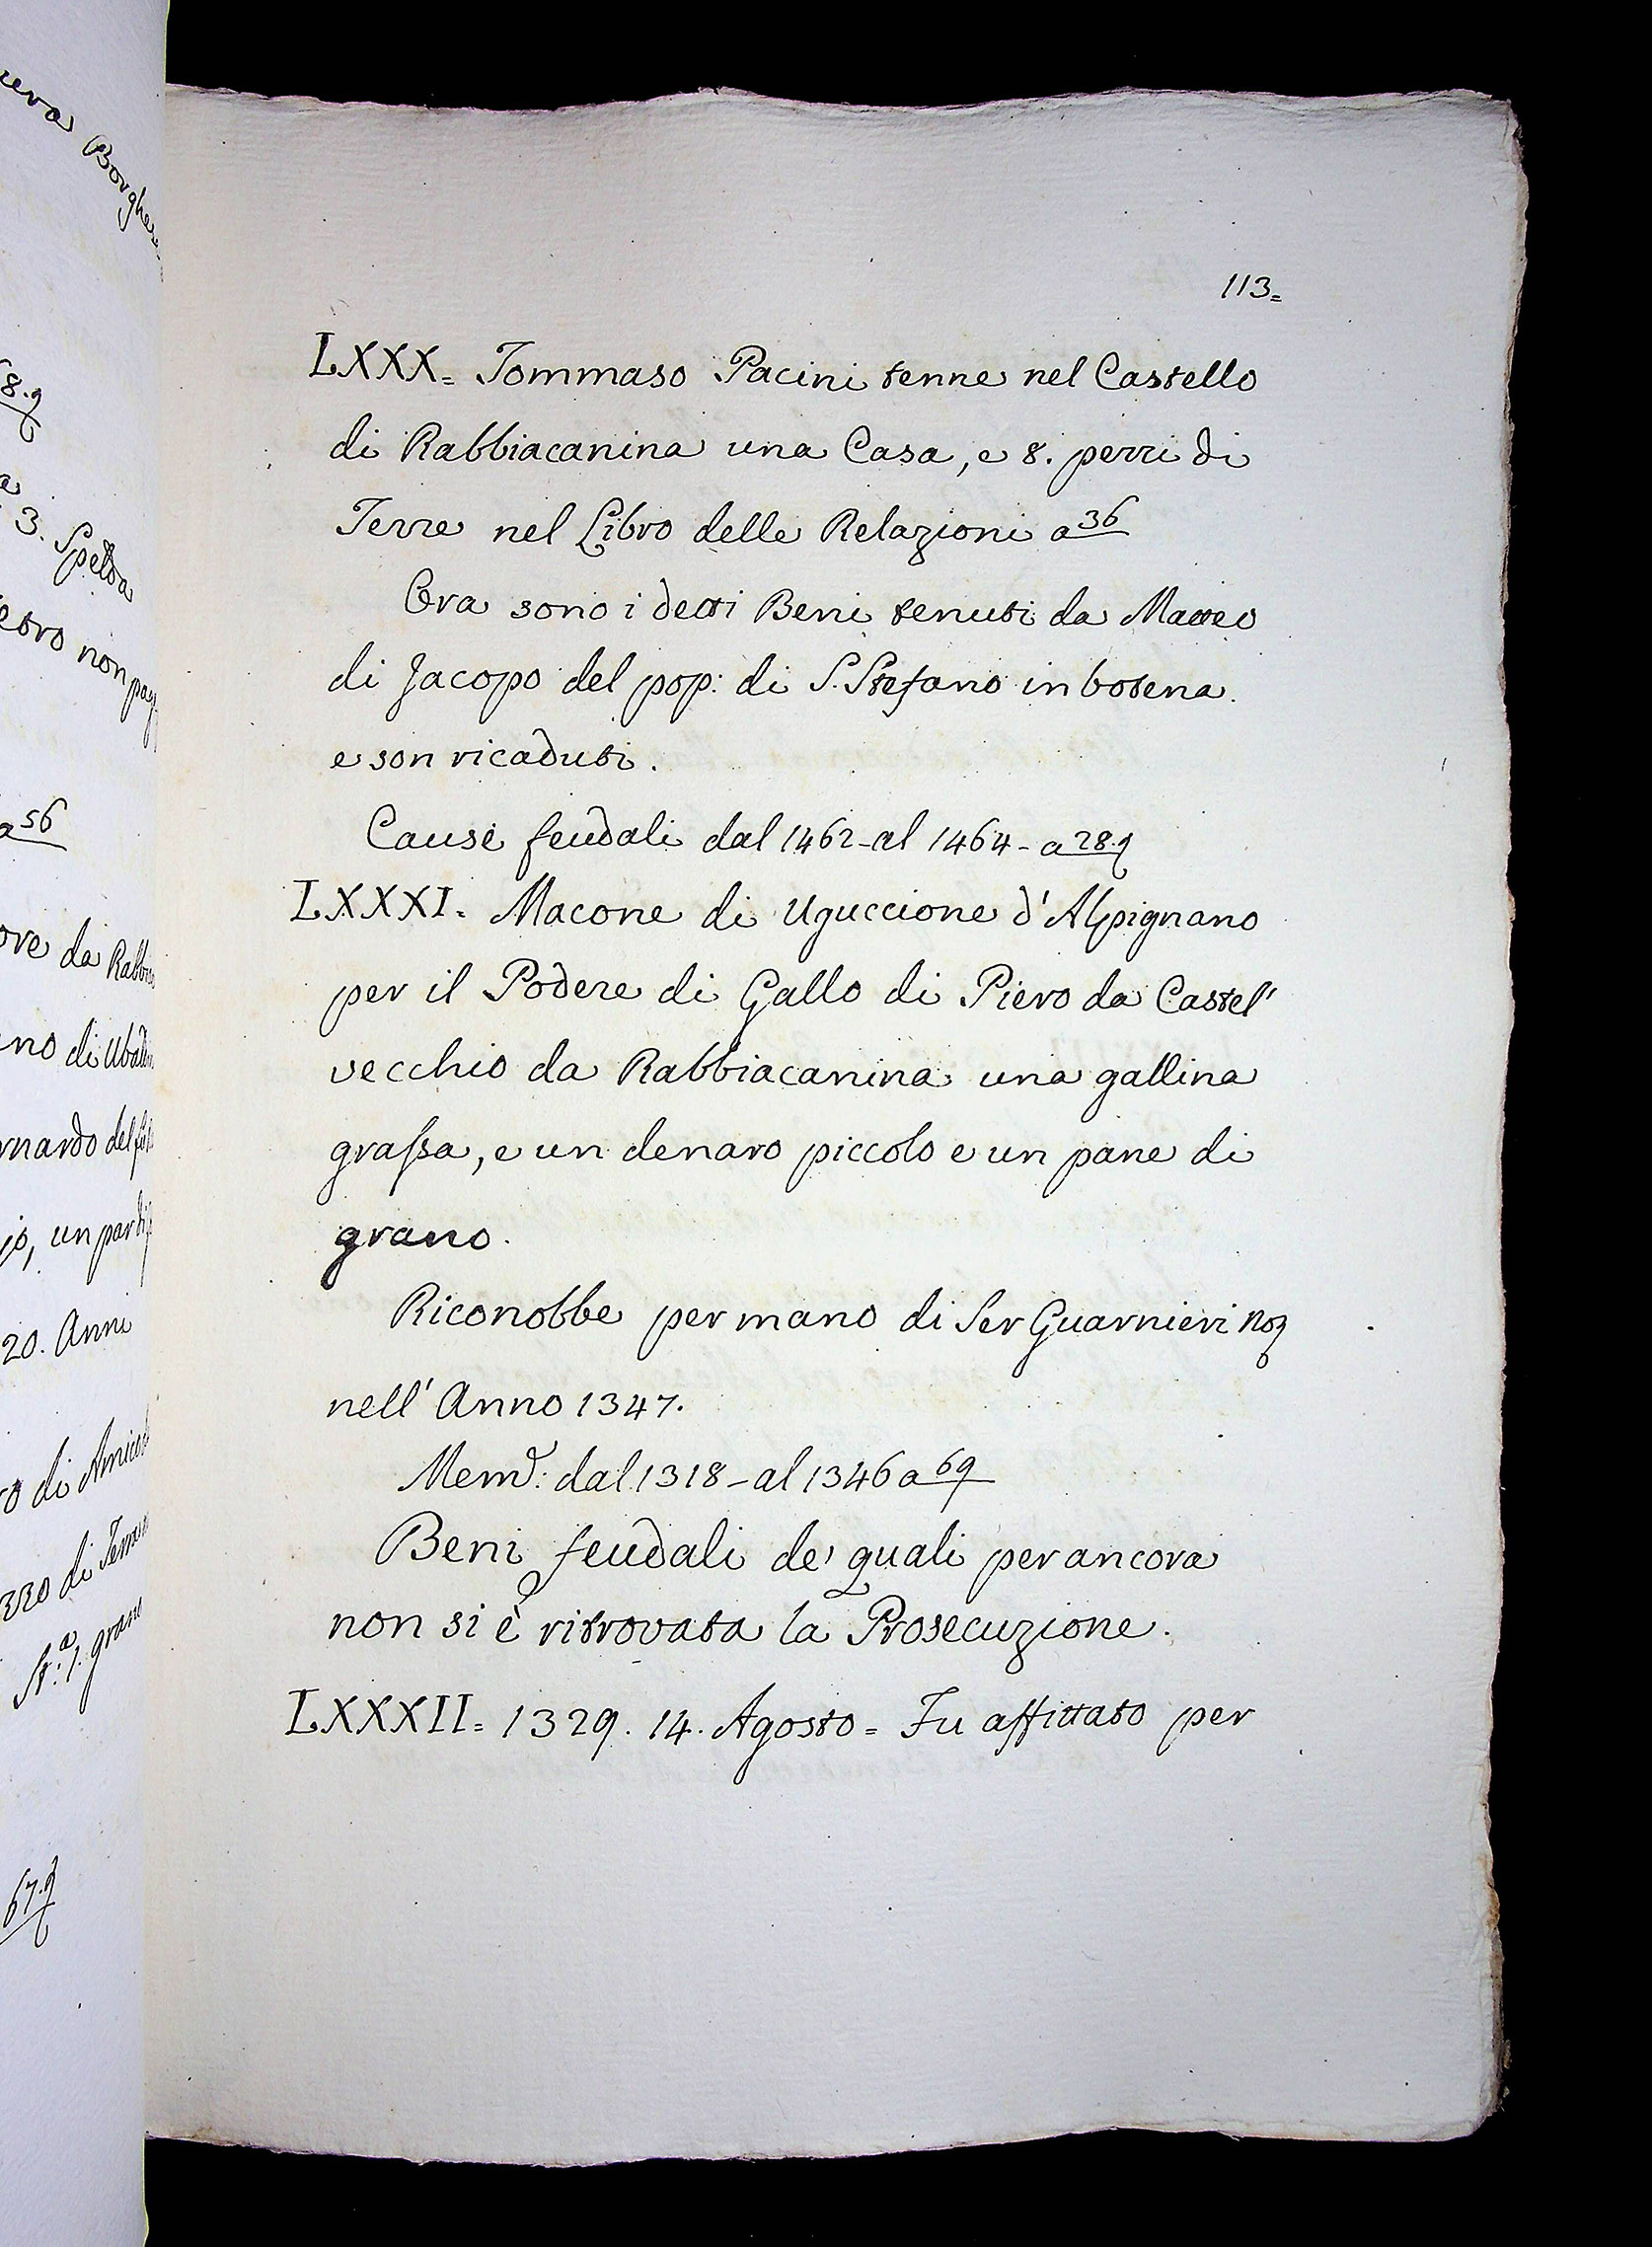 uova Borghe
8.9
a
3. Spelda
etro non pag
a 56
ore da Rabbia
no di Ubaldin
rnardo del
jo, un par di
20. Anni
ro di Amico
zzo di Terra
St.ª 1. grano
67.9
113=
LXXX= Tommaso Pacini tenne nel Castello
di Rabbiacanina una Casa, e 8. pezzi di
Terre nel Libro delle Relazioni a 36
Ora sono i detti Beni tenuti da Matteo
di Jacopo del pop: di S. Stefano in botena.
e son ricaduti.
Cause feudali dal 1462 - al 1464 - a 28.9
LXXXI. Macone di Uguccione d'Alpignano
per il Podere di Gallo di Piero da Castel'
vecchio da Rabbiacanina una gallina
grassa, e un denaro piccolo e un pane di
grano.
Riconobbe per mano di Ser Guarnieri Noʒ
nell' Anno 1347.
Memᵒ: dal 1318 - al 1346 a 69
Beni feudali de' quali per ancora
non si è ritrovata la Prosecuzione.
LXXXII= 1329. 14. Agosto = Fu affittato per